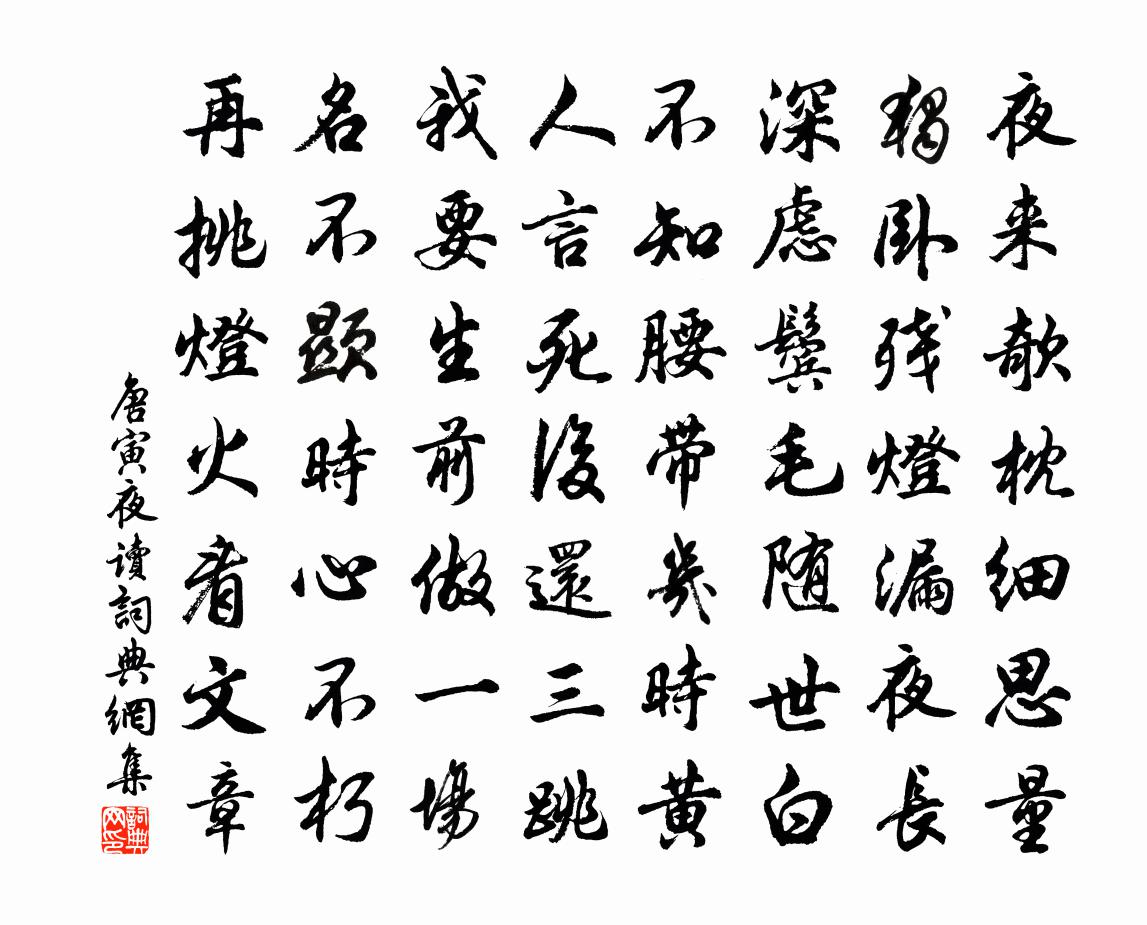 夜来欹枕细思量
獨卧残燈漏夜長
深慮鬓毛随世白
不知腰带幾時黄
人言死後還三跳
我要生前做一場
名不顯時心不朽
再挑燈火看文章
唐寅夜讀詞典網集
詞典网印